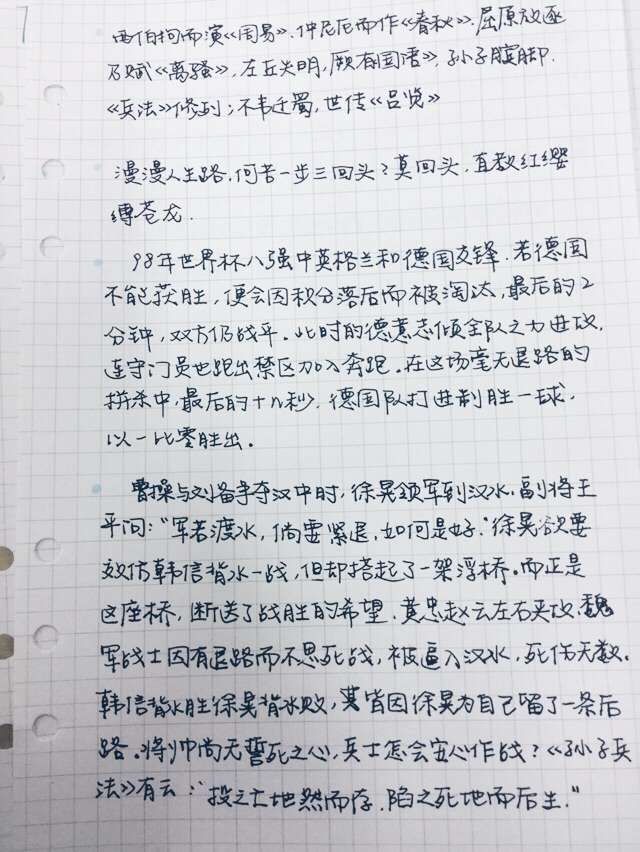 西伯拘而演《周易》.仲尼厄而作《春秋》.屈原放逐
乃赋《离骚》,左丘失明,厥有国语》,孙子膑脚.
《兵法》修列;不韦迁蜀,世传《吕览》
漫漫人生路.何苦一步三回头?莫回头,直教红缨
缚苍龙.
98年世界杯八强中英格兰和德国交锋.若德国
不能获胜,便会因积分落后而被淘汰,最后的2
分钟,双方仍战平.此时的德意志倾全队之力进攻,
连守门员也跑出禁区加入奔跑.在这场毫无退路的
拼杀中,最后的十几秒,德国队打进制胜一球,
以一比零胜出.
曹操与刘备争夺汉中时,徐晃领军到汉水.副将王
平问:"军若渡水,倘要紧退,如何是好."徐晃欲要
效仿韩信背水一战,但却搭起了一架浮桥.而正是
这座桥,断送了战胜的希望.黄忠赵云左右夹攻.魏
军战士因有退路而不思死战,被逼入汉水,死伤无数.
韩信背水胜徐晃背水败,皆因徐晃为自己留了一条后
路.将帅尚无誓死之心,兵士怎会安心作战?《孙子兵
法》有云:"投之亡地然而存,陷之死地而后生."